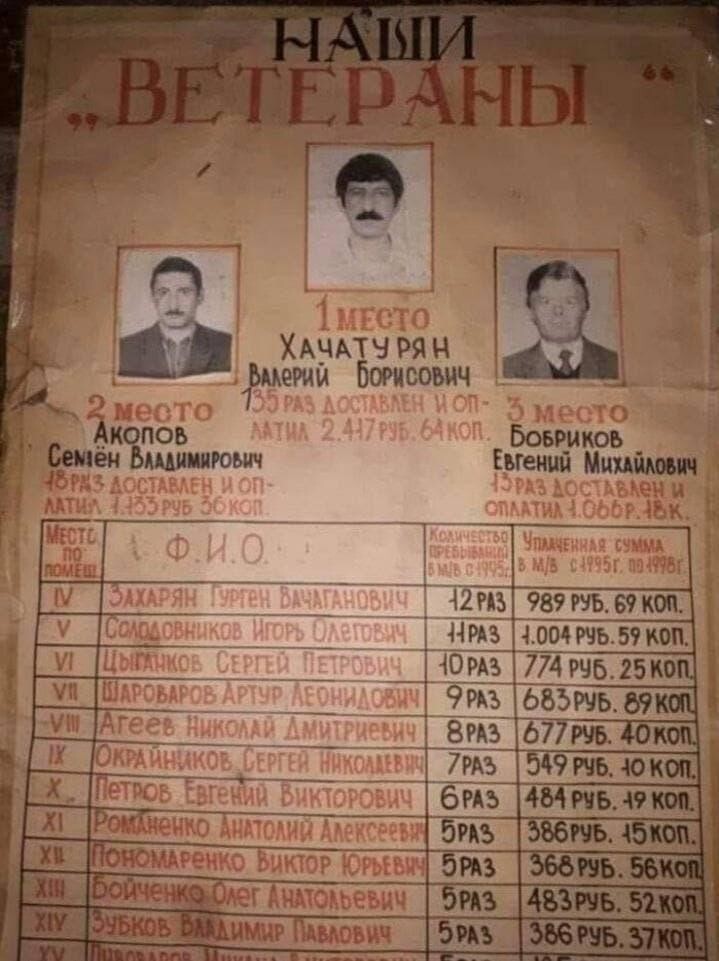 НАШИ
„ВЕТЕРАНЫ“
1 МЕСТО
ХАЧАТУРЯН
ВАЛЕРИЙ БОРИСОВИЧ
135 РАЗ ДОСТАВЛЕН И ОП-
ЛАТИЛ 2.417 РУБ. 64 КОП.
2 МЕСТО
АКОПОВ
СЕМЁН ВЛАДИМИРОВИЧ
18 РАЗ ДОСТАВЛЕН И ОП-
ЛАТИЛ 1.133 РУБ 36 КОП.
3 МЕСТО
БОБРИКОВ
ЕВГЕНИЙ МИХАЙЛОВИЧ
13 РАЗ ДОСТАВЛЕН И
ОПЛАТИЛ 1.066 Р. 18 К.
МЕСТО ПО ПОМЕЩ. Ф.И.О. КОЛИЧЕСТВО ПРЕБЫВАНИЙ В М/В С 1995г. УПЛАЧЕННАЯ СУММА В М/В С 1995г. ПО 1998г.
IV ЗАХАРЯН ГУРГЕН ВАЧАГАНОВИЧ 12 РАЗ 989 РУБ. 69 КОП.
V СОЛОДОВНИКОВ ИГОРЬ ОЛЕГОВИЧ 11 РАЗ 1.004 РУБ. 59 КОП.
VI ЦЫГАНКОВ СЕРГЕЙ ПЕТРОВИЧ 10 РАЗ 774 РУБ. 25 КОП.
VII ШАРОВАРОВ АРТУР ЛЕОНИДОВИЧ 9 РАЗ 683 РУБ. 89 КОП.
VIII АГЕЕВ НИКОЛАЙ ДМИТРИЕВИЧ 8 РАЗ 677 РУБ. 40 КОП.
IX ОКРАЙНИКОВ СЕРГЕЙ НИКОЛАЕВИЧ 7 РАЗ 549 РУБ. 10 КОП.
X. ПЕТРОВ ЕВГЕНИЙ ВИКТОРОВИЧ 6 РАЗ 484 РУБ. 19 КОП.
XI РОМАНЕНКО АНАТОЛИЙ АЛЕКСЕЕВИЧ 5 РАЗ 386 РУБ. 15 КОП.
XII ПОНОМАРЕНКО ВИКТОР ЮРЬЕВИЧ 5 РАЗ 368 РУБ. 56 КОП
XIII БОЙЧЕНКО ОЛЕГ АНАТОЛЬЕВИЧ 5 РАЗ 483 РУБ. 52 КОП.
XIV ЗУБКОВ ВЛАДИМИР ПАВЛОВИЧ 5 РАЗ 386 РУБ. 37 КОП.
XV ПИВОВАРОВ